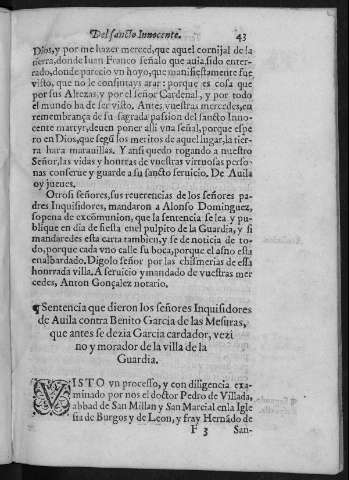 Del sancto Innocente. 43
Dios, y por me hazer merced, que aquel cornijal de la
tierra, donde Iuan Franco señalo que auia sido enter-
rado, donde parecio vn hoyo, que manifiestamente fue
visto, que no le consintays arar: porque es cosa que
por sus Altezas, y por el señor Cardenal, y por todo
el mundo ha de ser visto. Antes vuestras mercedes, en
remembrança de su sagrada passion del sancto Inno-
cente martyr, deuen poner alli vna señal, porque espe
ro en Dios, que segũ los meritos de aquel lugar, la tier-
ra hara marauillas. Y ansi quedo rogando a nuestro
Señor, las vidas y honrras de vuestras virtuosas perso-
nas conserue y guarde a su sancto seruicio. De Auila
oy jueues.
Otrosi señores, sus reuerencias de los señores pa-
dres Inquisidores, mandaron a Alonso Dominguez,
sopena de excõmunion, que la sentencia se lea y pu-
blique en dia de fiesta en el pulpito de la Guardia, y si
mandaredes esta carta tambien, y se de noticia de to-
do, porque cada vno calle su boca, porque el asno esta
enalbardado. Digolo señor por las chismerias de essa
honrrada villa. A seruicio y mandado de vuestras mer
cedes, Anton Gonçalez notario.
¶ Sentencia que dieron los señores Inquisidores
de Auila contra Benito Garcia de las Mesuras,
que antes se dezia Garcia cardador, vezi
no y morador de la villa de la
Guardia.
VISTO vn processo, y con diligencia exa-
minado por nos el doctor Pedro de Villada,
abbad de San Millan y San Marcial en la Igle
sia de Burgos y de Leon, y fray Hernãdo de
F 3 San-